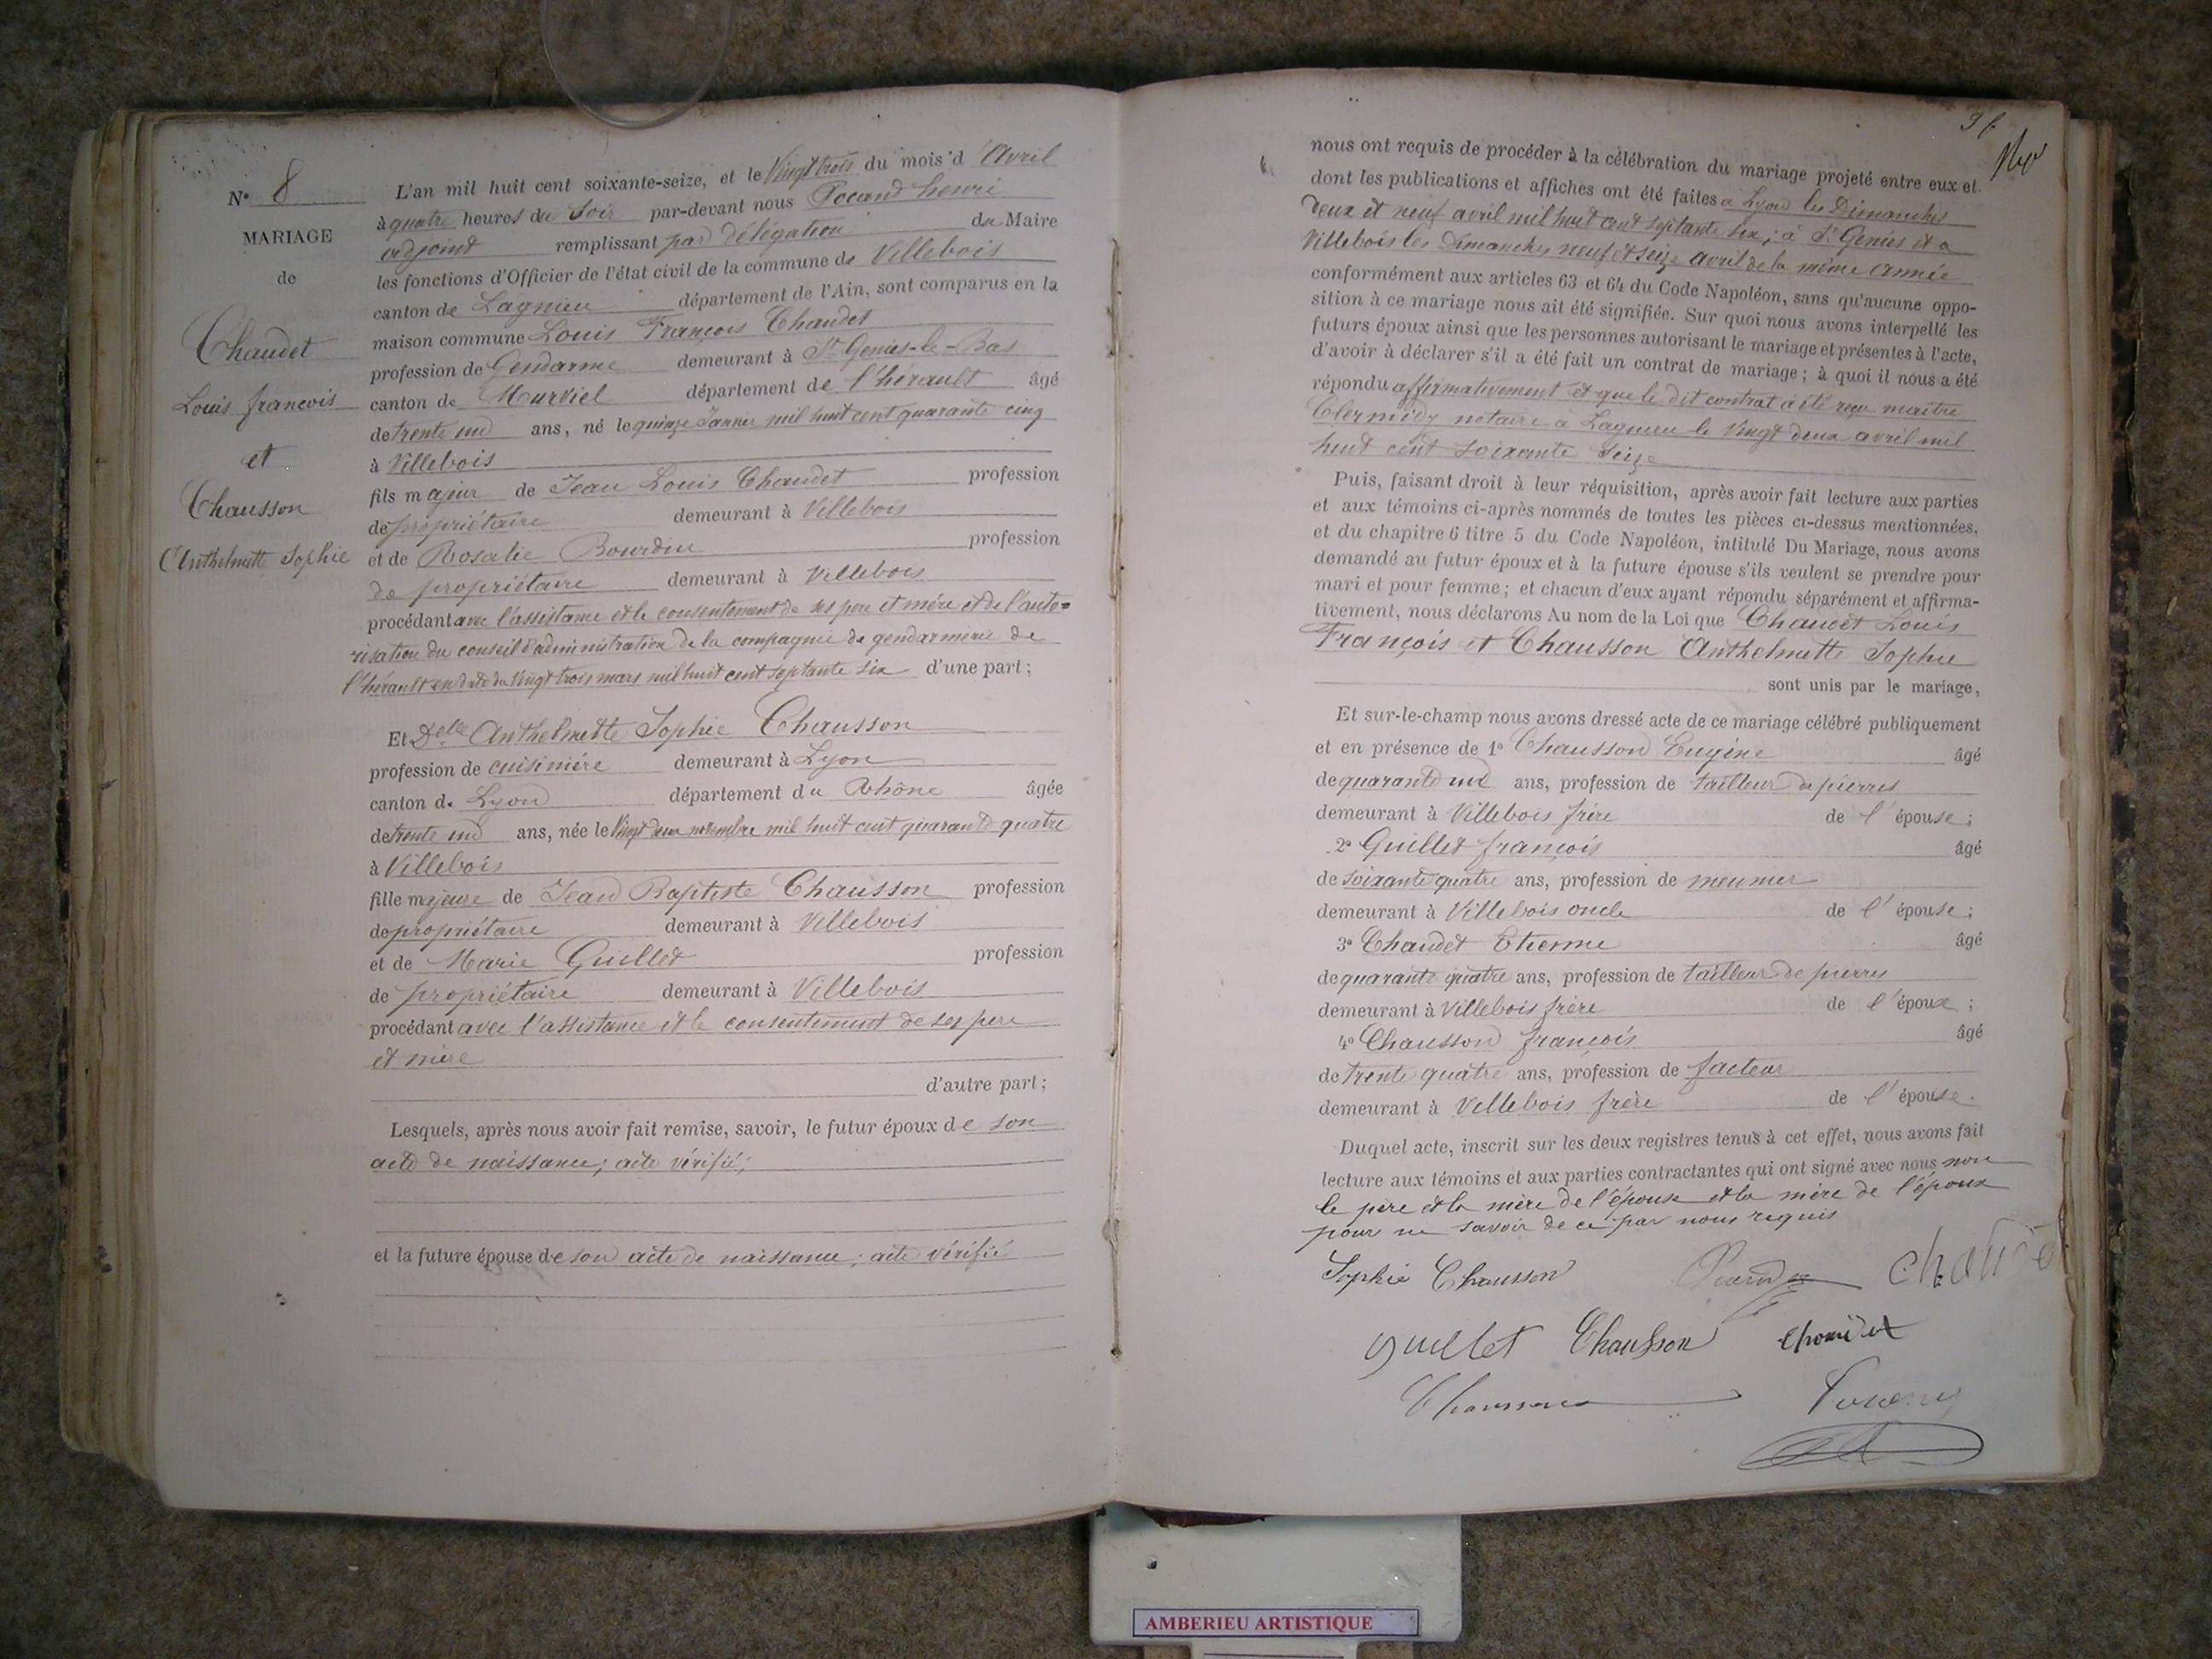 N° 8
MARIAGE
de
Chaudet
Louis françois
et
Chausson
Anthelmette Sophie
L'an mil huit cent soixante-seize, et le Vingt trois du mois d'Avril
à quatre heures du Soir par-devant nous Pocard henri
adjoint remplissant par délégation du Maire
les fonctions d'Officier de l'état civil de la commune de Villebois
canton de Lagnieu département de l'Ain, sont comparus en la
maison commune Louis François Chaudet
profession de Gendarme demeurant à St Geniès-le-Bas
canton de Murviel département de l'hérault âgé
de trente un ans, né le quinze Janvier mil huit cent quarante cinq
à Villebois
fils majeur de Jean Louis Chaudet profession
de propriétaire demeurant à Villebois
et de Rosalie Bourdin profession
de propriétaire demeurant à Villebois
procédant avec l'assistance et le consentement de ses père et mère et de l'auto=
risation du conseil d'administration de la compagnie de gendarmerie de
l'hérault en date du Vingt trois mars mil huit cent septante six d'une part;
Et Delle Anthelmette Sophie Chausson
profession de cuisinière demeurant à Lyon
canton de Lyon département du Rhône âgée
de trente un ans, née le Vingt deux novembre mil huit cent quarante quatre
à Villebois
fille majeure de Jean Baptiste Chausson profession
de propriétaire demeurant à Villebois
et de Marie Guillet profession
de propriétaire demeurant à Villebois
procédant avec l'assistance et le consentement de ses père
et mère
d'autre part;
Lesquels, après nous avoir fait remise, savoir, le futur époux de son
acte de naissance; acte vérifié;
et la future épouse de son acte de naissance; acte vérifié
nous ont requis de procéder à la célébration du mariage projeté entre eux et
dont les publications et affiches ont été faites à Lyon les Dimanches
deux et neuf avril mil huit cent septante six; à St Geniès et à
Villebois les Dimanches neuf et seize avril de la même année
conformément aux articles 63 et 64 du Code Napoléon, sans qu'aucune oppo-
sition à ce mariage nous ait été signifiée. Sur quoi nous avons interpellé les
futurs époux ainsi que les personnes autorisant le mariage et présentes à l'acte,
d'avoir à déclarer s'il a été fait un contrat de mariage; à quoi il nous a été
répondu affirmativement et que le dit contrat a été reçu maître
Clermidy notaire à Lagnieu le Vingt deux avril mil
huit cent soixante seize
Puis, faisant droit à leur réquisition, après avoir fait lecture aux parties
et aux témoins ci-après nommés de toutes les pièces ci-dessus mentionnées,
et du chapitre 6 titre 5 du Code Napoléon, intitulé Du Mariage, nous avons
demandé au futur époux et à la future épouse s'ils veulent se prendre pour
mari et pour femme; et chacun d'eux ayant répondu séparément et affirma-
tivement, nous déclarons Au nom de la Loi que Chaudet Louis
François et Chausson Anthelmette Sophie
sont unis par le mariage,
Et sur-le-champ nous avons dressé acte de ce mariage célébré publiquement
et en présence de 1° Chausson Eugène âgé
de quarante un ans, profession de tailleur de pierres
demeurant à Villebois frère de l'épouse;
2° Guillet françois âgé
de soixante quatre ans, profession de meunier
demeurant à Villebois oncle de l'épouse;
3° Chaudet Etienne âgé
de quarante quatre ans, profession de tailleur de pierres
demeurant à Villebois frère de l'époux;
4° Chausson françois âgé
de trente quatre ans, profession de facteur
demeurant à Villebois frère de l'épouse.
Duquel acte, inscrit sur les deux registres tenus à cet effet, nous avons fait
lecture aux témoins et aux parties contractantes qui ont signé avec nous non
le père et la mère de l'épouse et la mère de l'époux
pour ne savoir de ce par nous requis
Sophie Chausson
Guillet Chausson
Chausson
AMBERIEU ARTISTIQUE